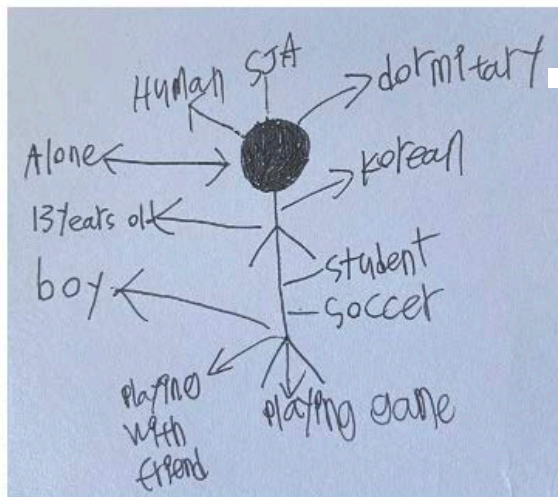 SJA
Human
dormitary
Alone
korean
13 years old
boy
student
soccer
playing
with
friend
playing game